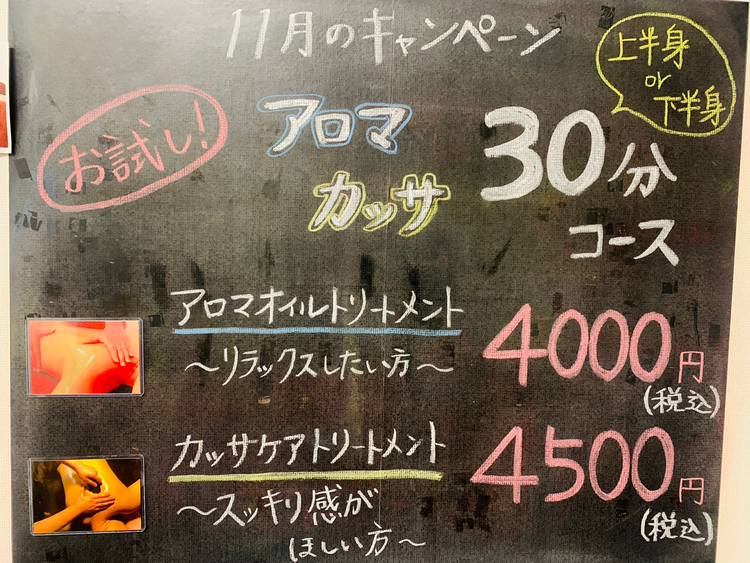 11月のキャンペーン
上半身
or
下半身
お試し!
アロマ
カッサ
30分
コース
アロマオイルトリートメント
〜リラックスしたい方〜
4000円
(税込)
カッサケアトリートメント
〜スッキリ感が
ほしい方〜
4500円
(税込)